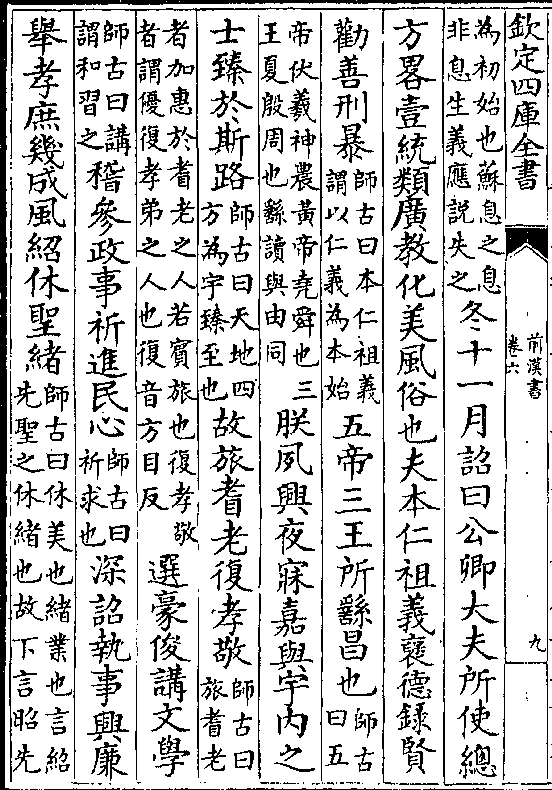 欽定四庫全書
前漢書
卷六
九
為初始也蘇息之息
非息生義應説失之
冬十一月詔曰公卿大夫所使總
方畧壹統類廣教化美風俗也夫本仁祖義襃德録賢
勸善刑暴
師古曰本仁祖義
謂以仁義為本始
五帝三王所繇昌也
師古
曰五
帝伏羲神農黃帝堯舜也三
王夏殷周也繇讀與由同
朕夙興夜寐嘉與宇内之
士臻於斯路
師古曰天地四
方為宇臻至也
故旅耆老復孝敬
師古曰
旅耆老
者加惠於耆老之人若賓旅也復孝敬
者謂優復孝弟之人也復音方目反
選豪俊講文學
師古曰講
謂和習之
稽參政事祈進民心
師古曰
祈求也
深詔執事興廉
舉孝庶幾成風紹休聖緒
師古曰休美也緒業也言紹
先聖之休緒也故下言昭先